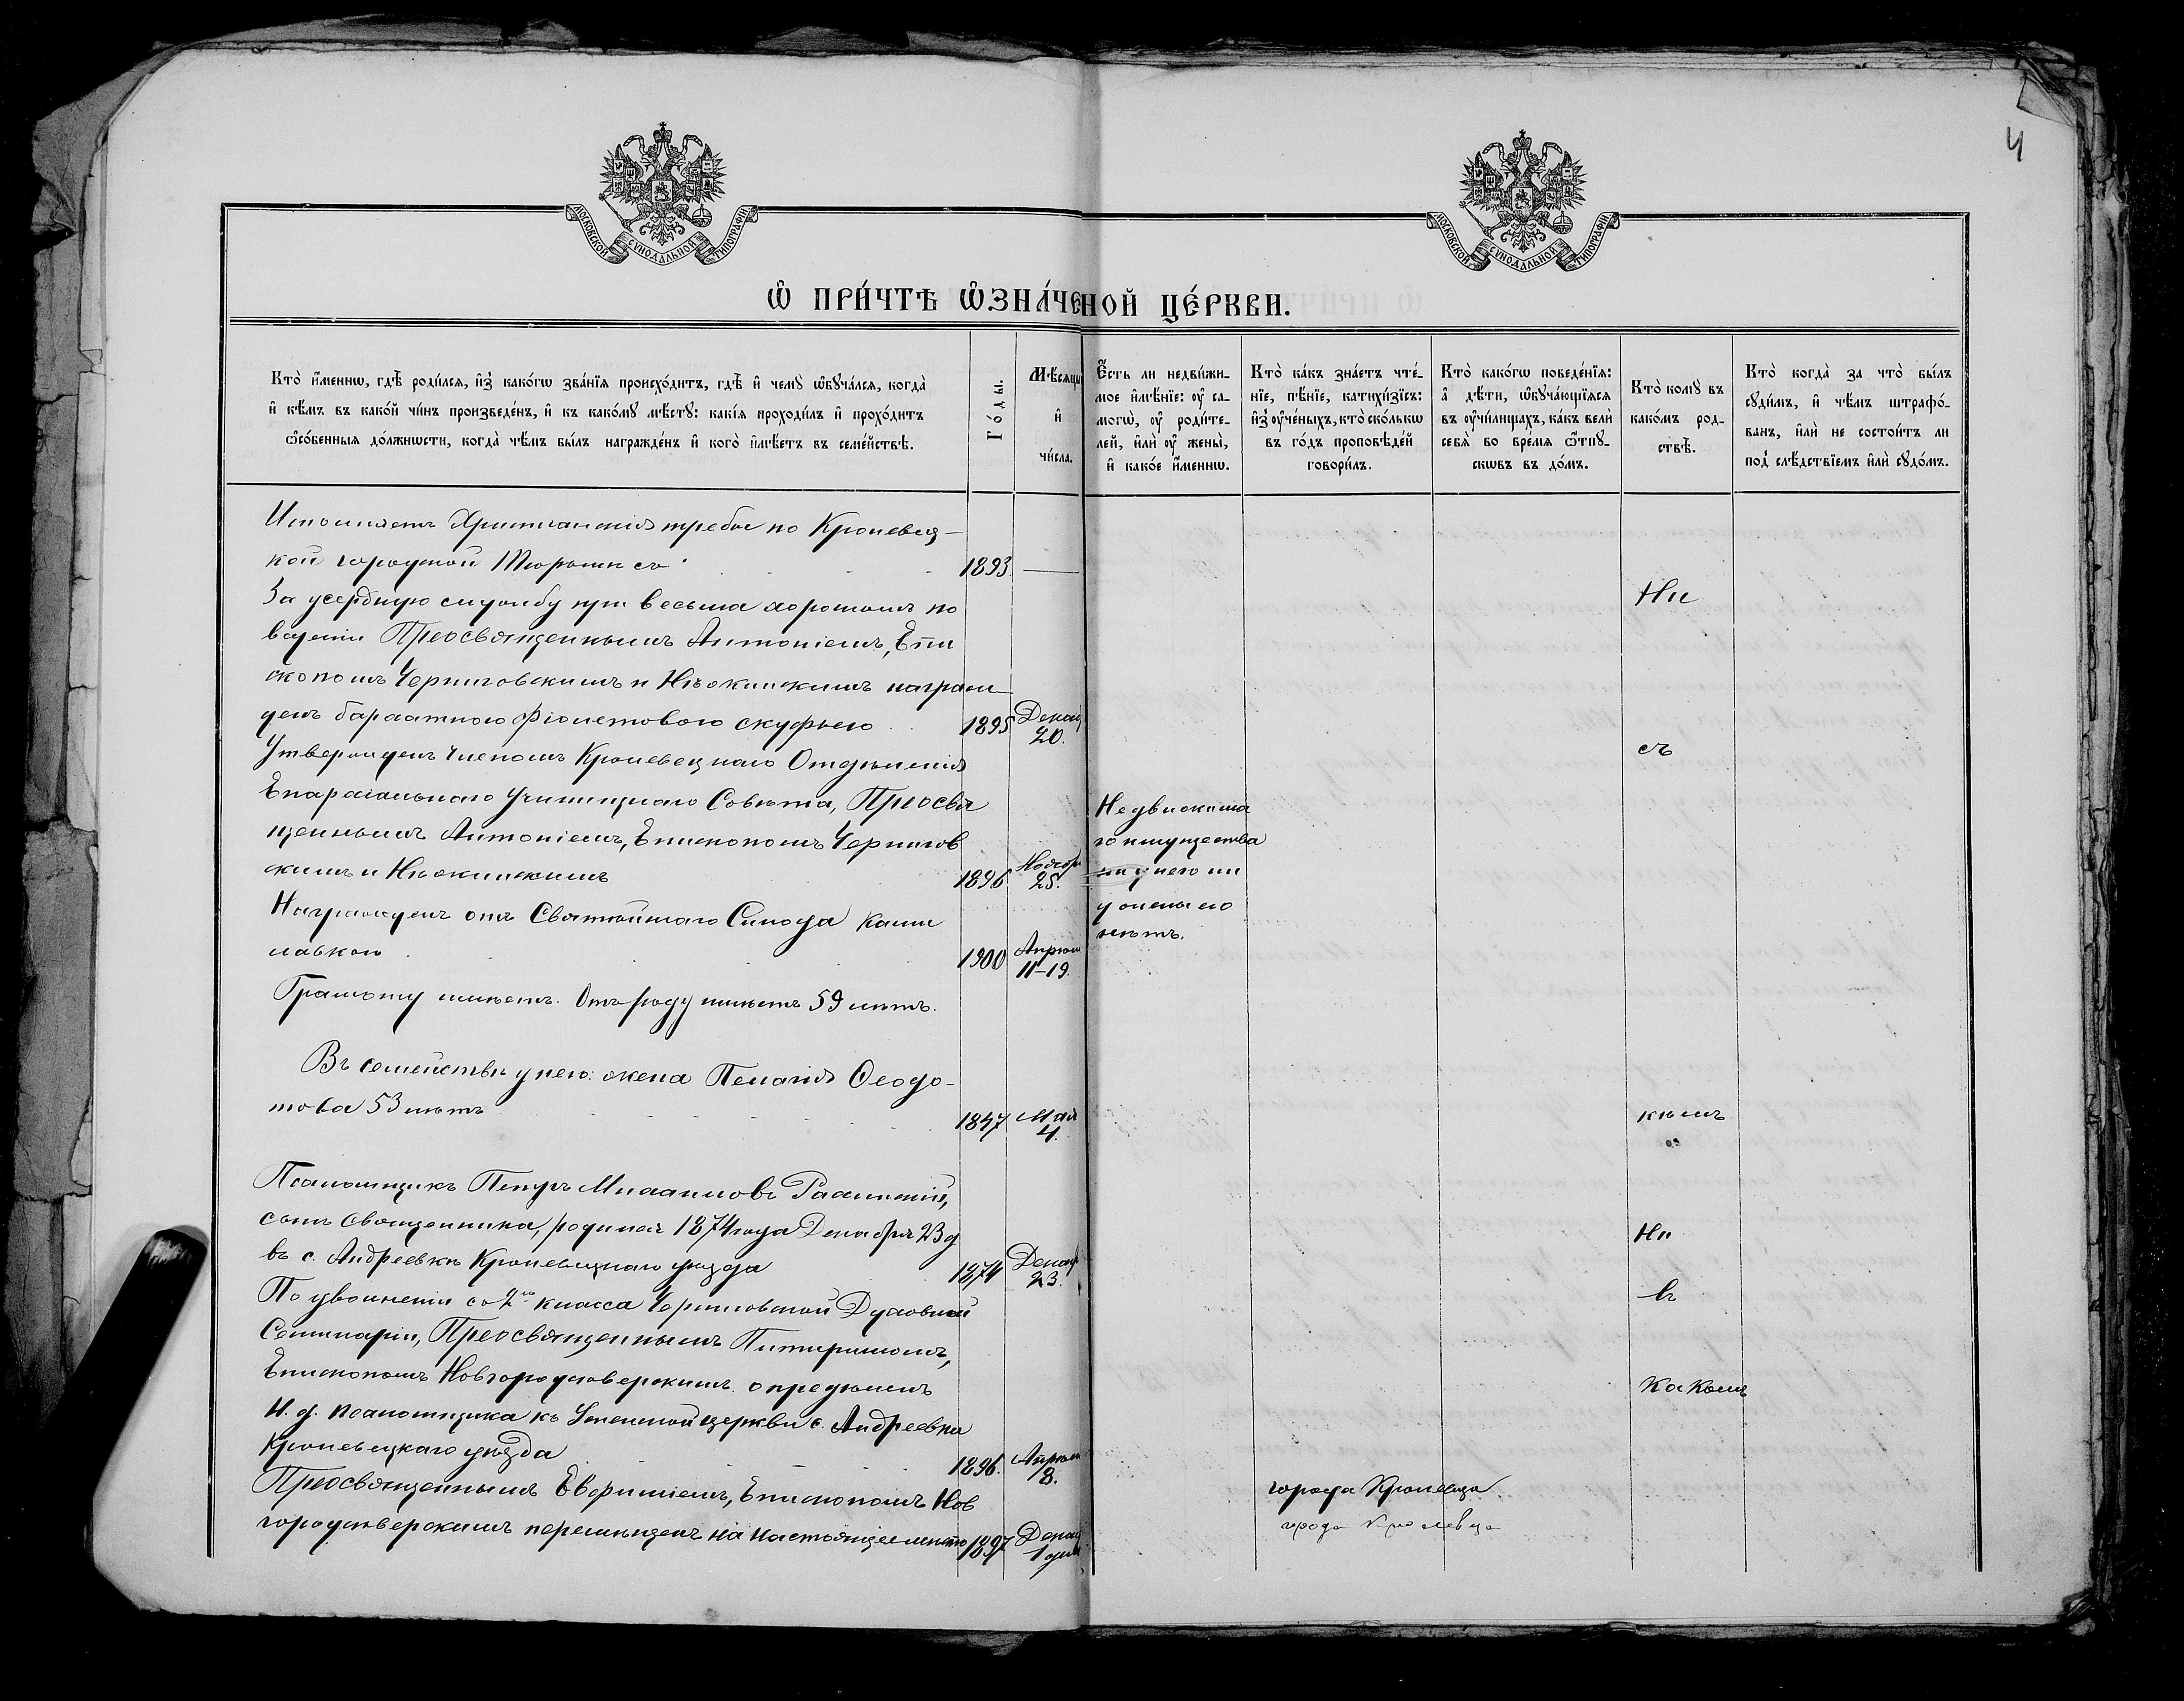 4
МОСКОВСКОЙ СѴНОДАЛЬНОЙ ТИПОГРАФІИ
МОСКОВСКОЙ СѴНОДАЛЬНОЙ ТИПОГРАФІИ
Ѡ ПРИ́ЧТѢ ѠЗНА́ЧЕНОЙ ЦЕ́РКВИ.
Кто̀ и҆́меннѡ, гдѣ̀ роди́лся, и҆з̾ како́гѡ зва́нїѧ происхо́дитъ, гдѣ̀ и҆ чемꙋ̀ ѡ҆бꙋча́лся, когда̀
и҆ кѣ́мъ въ како́й чи́нъ произведе́нъ, и҆ къ како́мꙋ мѣ́стꙋ: какі́ѧ проходи́лъ и҆ прохо́дитъ
ѻ҆со́бенныѧ до́лжнѡсти, когда̀ чѣ́мъ бы́лъ награжде́нъ и҆ кого̀ и҆мѣ́етъ въ семе́йствѣ.
Го́ды.
Мѣ́сяцы
и҆
чи́сла.
Є҆́сть ли недви́жи-
мое и҆мѣ́нїе: оу҆ са-
могѡ̀, оу҆ роди́те-
лей, и҆лѝ оу҆ жены̀,
и҆ како́е и҆́меннѡ.
Кто̀ ка́къ зна́етъ чте́-
нїе, пѣ́нїе, катихи́зїсъ:
и҆з̾ оу҆че́ныхъ, кто̀ ско́лькѡ
въ го́дъ проповѣ́дей
говори́лъ.
Кто̀ како́гѡ поведе́нїѧ:
а҆ дѣ́ти, ѡ҆бꙋча́ющїѧся
въ оу҆чи́лищахъ, ка́къ велѝ
себѧ̀ во вре́мѧ ѿпꙋ-
скѡвъ въ до́мъ.
Кто̀ комꙋ̀ въ
како́мъ род-
ствѣ̀.
Кто̀ когда̀ за что̀ бы́лъ
сꙋди́мъ, и҆ чѣ́мъ штрафо́-
ванъ, и҆лѝ не состои́тъ ли
под̾ слѣ́дствїемъ и҆лѝ сꙋдо́мъ.
Исполняетъ Христіанскія требы по Кролевец-
кой городской Тюрьмѣ съ 1893 —
За усердную службу при весьма хорошомъ по
веденіи Преосвященнымъ Антоніемъ, Епи
скопомъ Черниговскимъ и Нѣжинскимъ награж
денъ бархатною фіолетовою скуфьею 1895 Декаб 20.
Утвержденъ Членомъ Кролевецкаго Отдѣленія
Епархіальнаго Училищнаго Совѣта, Преосвя
щеннымъ Антоніемъ, Епископомъ Чернигов
скимъ и Нѣжинскимъ 1896 Ноябр 25.
Награжденъ отъ Святѣйшаго Синода Ками
лавкою 1900 Апрѣля 11-19.
Грамоту имѣетъ. Отъ роду имѣетъ 59 лѣтъ.
Въ семействѣ у него: жена Пелагія Ѳеодо-
това 53 лѣтъ 1847 Мая 4.
Псаломщикъ Петръ Михаиловъ
сынъ Священника, родился 1874 года Декабря 23 д
въ с. Андреевкѣ Кролевецкаго уѣзда 1874 Декаб 23.
По увольненіи со 2го класса Черниговской Духовной
Семинаріи, Преосвященнымъ Питиримомъ,
Епископомъ Новгородсѣверскимъ опредѣленъ
И. д. псаломщика къ Успенской церкви с. Андреевки
Кролевецкаго уѣзда 1896. Апрѣля 8.
Преосвященнымъ Евфиміемъ, Епископомъ Нов
городсѣверскимъ перемѣщенъ на настоящее мѣсто 1897 Декаб 1 дня
Недвижима
го имущества
у него ни
у жены его
нѣтъ.
Ни
съ
кѣмъ
Ни
въ
какомъ
города Кролевца
города Кролевца